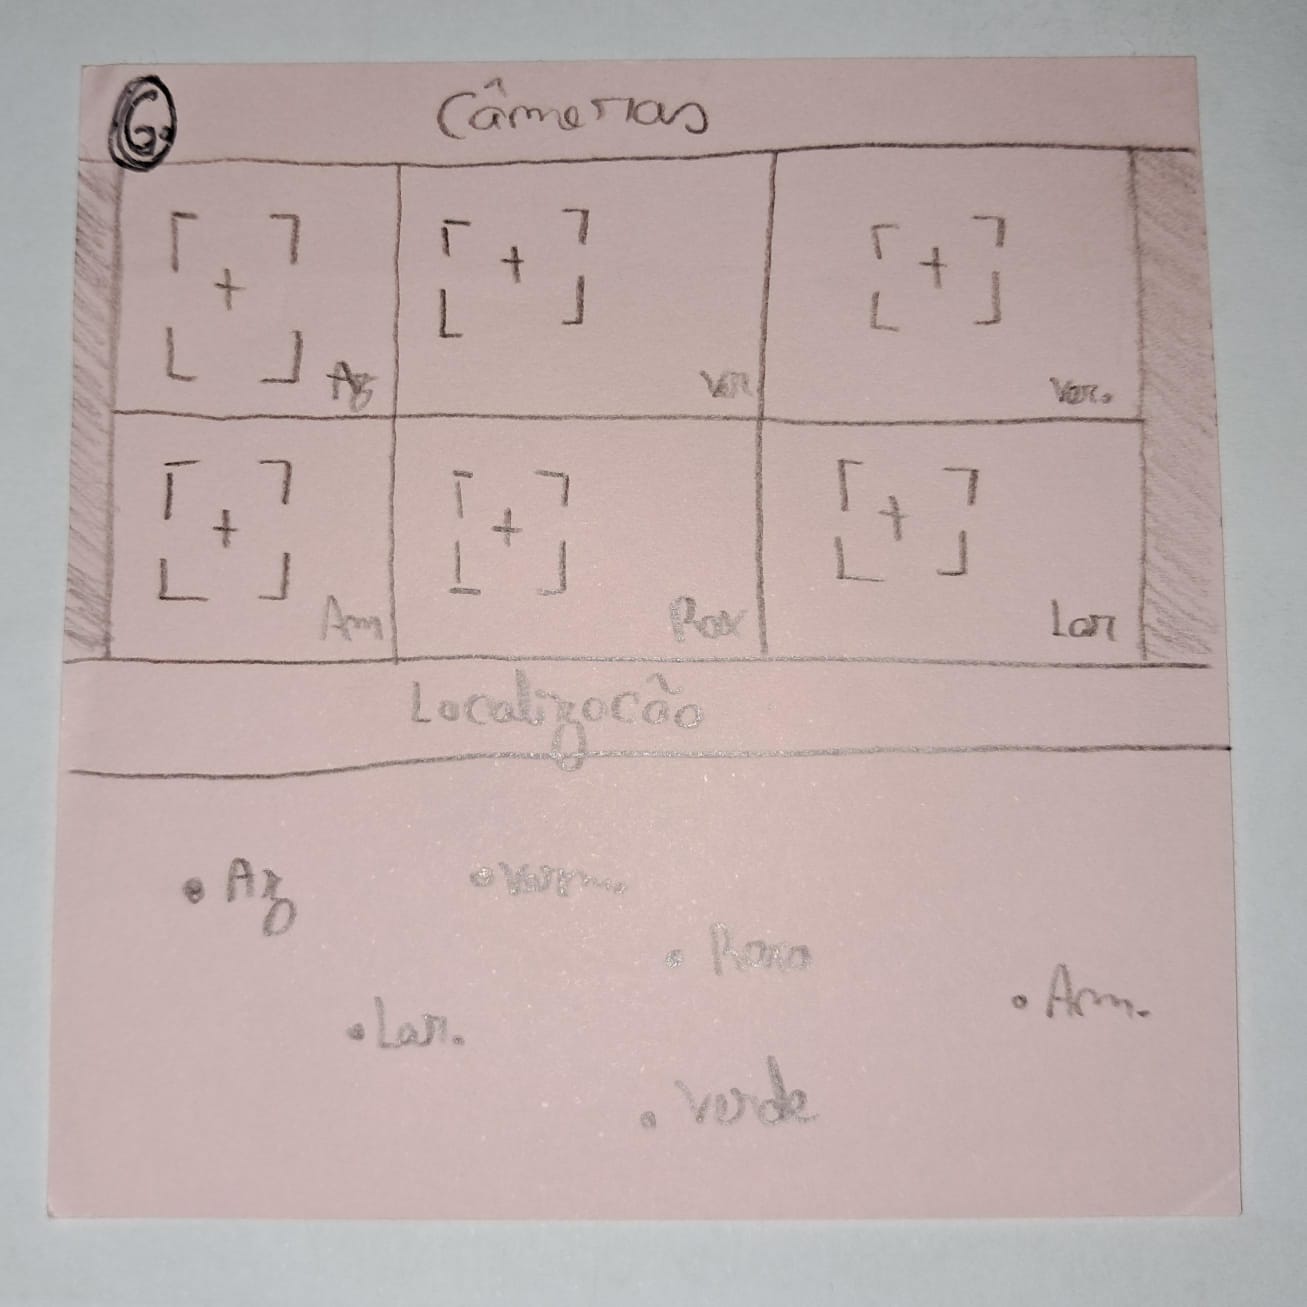 6.
Câmeras
Az
Ver
Ver.
Am
Rox
Lar
Localizacão
Az
Verm.
Roxo
Arm.
Lar.
Verde